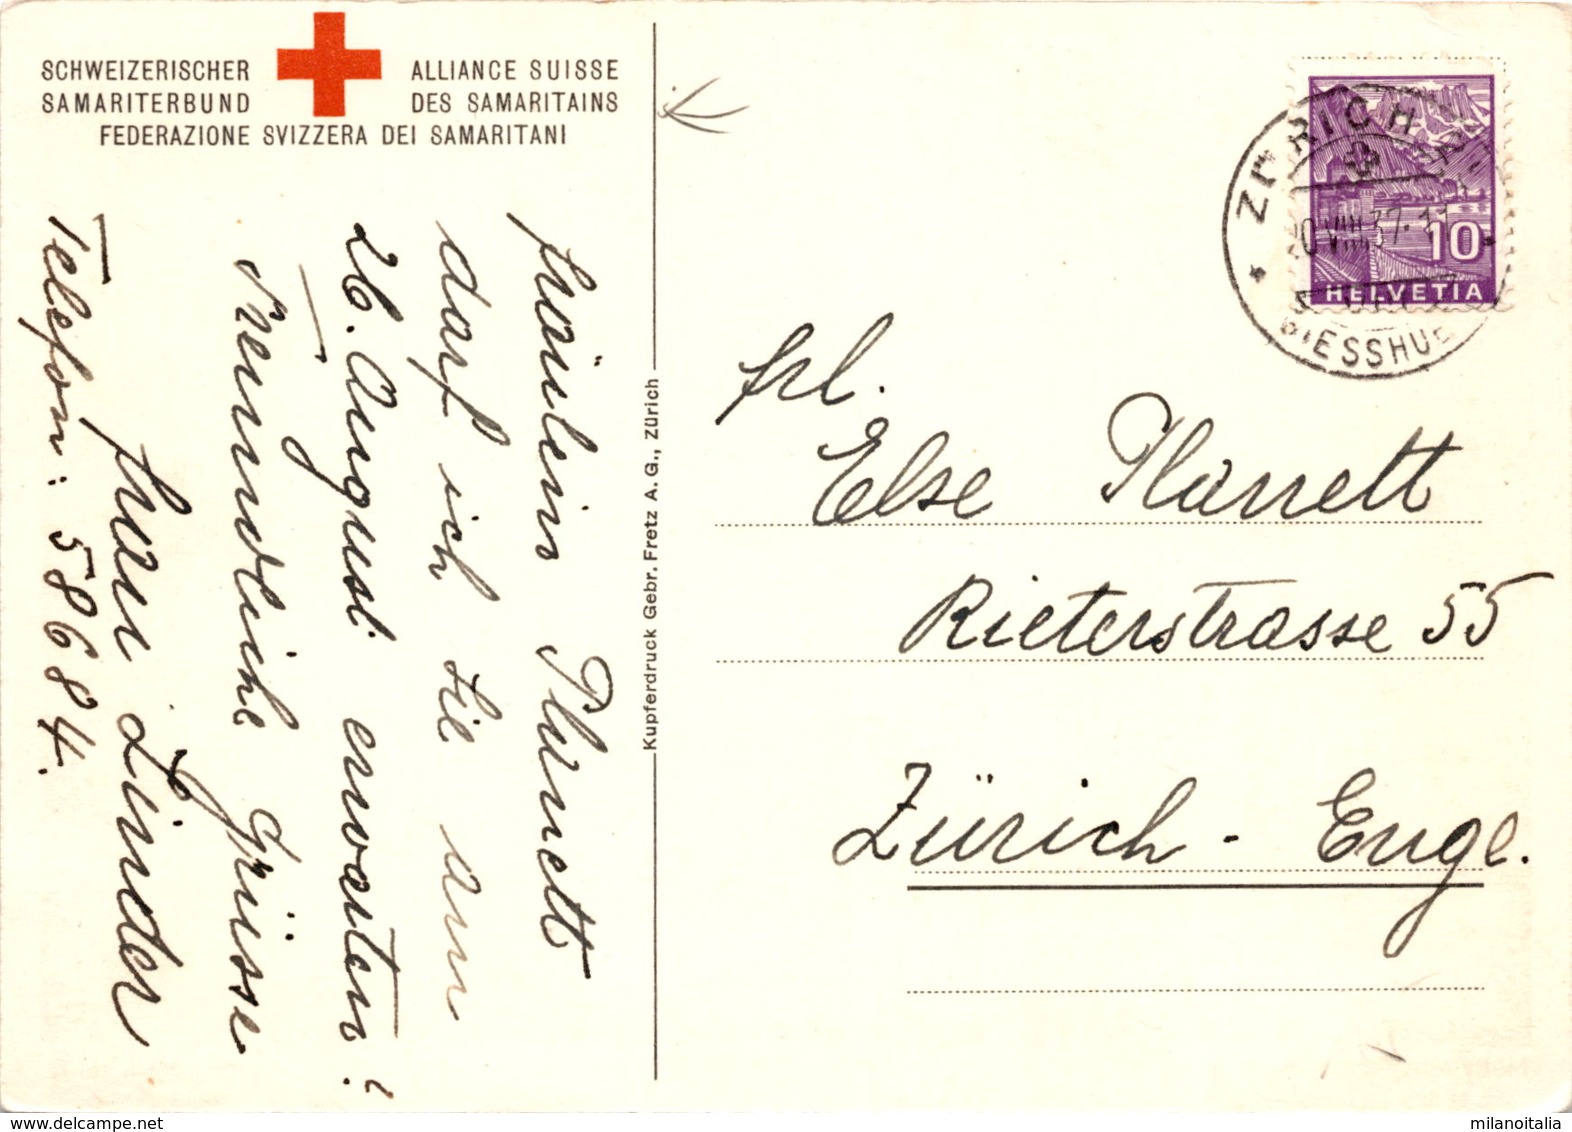 SCHWEIZERISCHER
SAMARITERBUND
ALLIANCE SUISSE
DES SAMARITAINS
FEDERAZIONE SVIZZERA DEI SAMARITANI
Fräulein
darf ich Sie am
26. August erwarten?
Freundliche Grüsse
Frau Linder
Telefon: 58684.
Kupferdruck Gebr. Fretz A. G., Zürich
ZÜRICH
VIII 37
10
HELVETIA
Frl.
Else
Rieterstrasse 55
Zürich - Enge.
milanoitalia